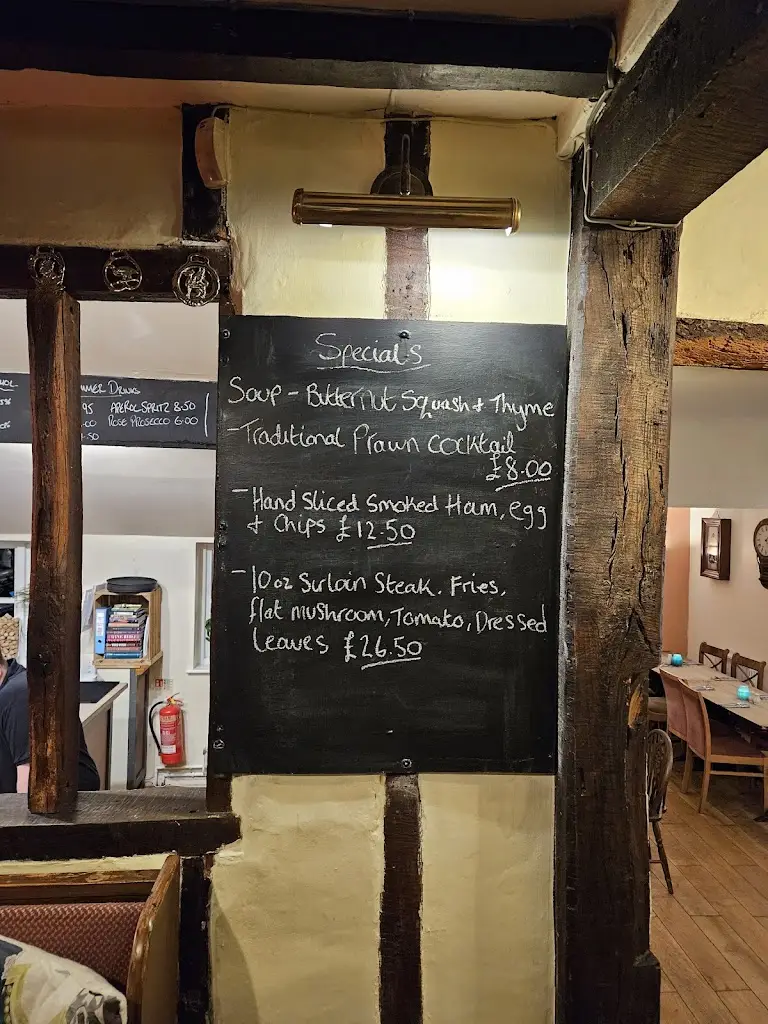 Specials
Soup - Butternut Squash & Thyme
- Traditional Prawn cocktail
£8.00
- Hand Sliced Smoked Ham, egg
& Chips £12.50
- 10oz Surloin Steak. Fries,
flat mushroom, Tomato, Dressed
leaves £26.50
MMER DRINKS
95 APEROL SPRITZ 8.50
.00 ROSE PROSECCO 6.00
.50